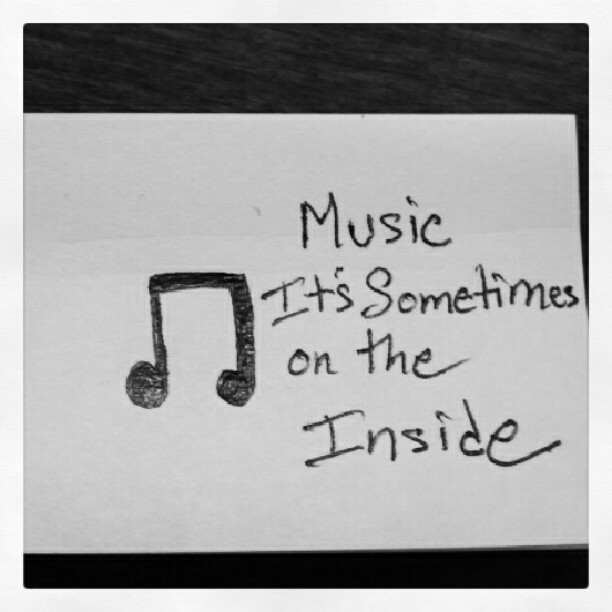 Music
It's Sometimes
on the
Inside